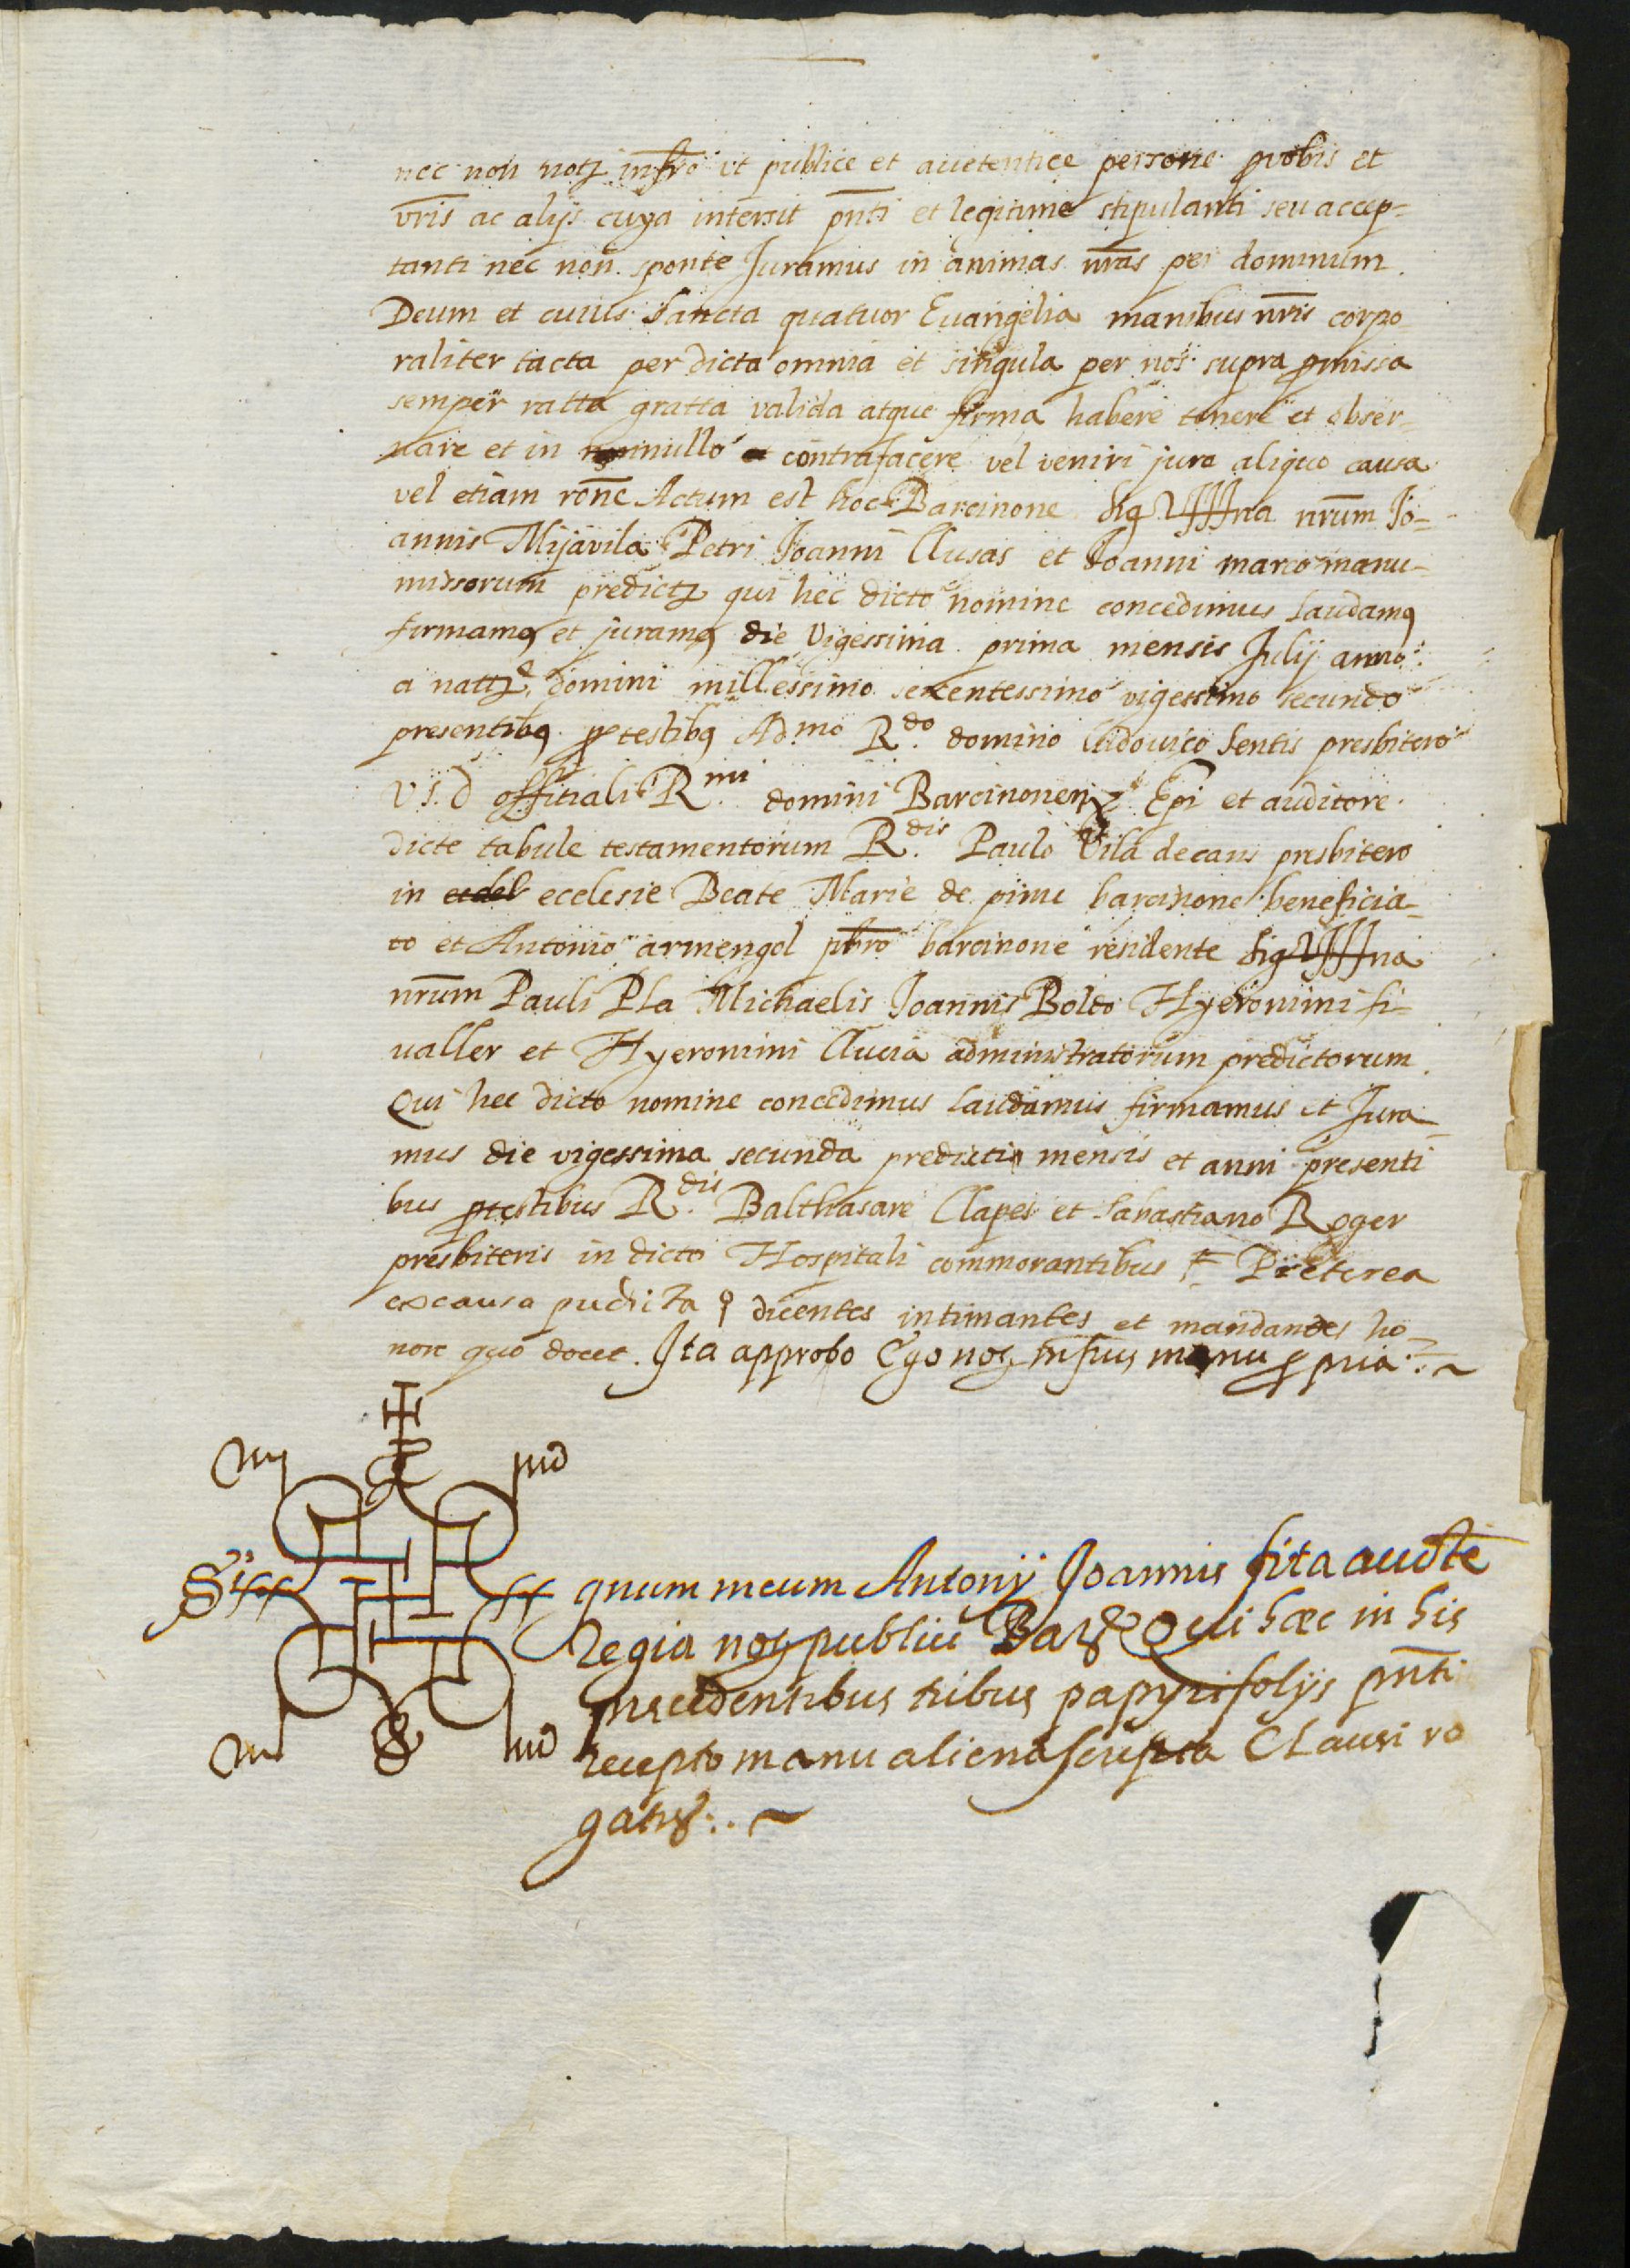 nec non notj infrō vt publice et autentice persone p vobis et
vr̄is ac alijs cuya intersit pn̄ti et legitime stipulanti seu accep=
tanti nec non sponte Juramus in animas nr̄as per dominum
Deum et cuius Sancta quatuor Euangelia manibus nr̄is corpo
raliter tacta per dicta omnia et singula per nos supra pmissa
semper ratta gratta valida atque firma habere tenere et obser=
uare et in nullo contrafacere vel veniri jure aliquo causa
vel etiam ron̄e Actum est hoc Barcinone Sig na nr̄um Jo=
annis Mijavila Petri Joanni Clusas et Joanni marco manu-
missorum predictj qui hec dicto nomine concedimus laudamq
firmamq et juramq die Vigessima prima mensis Julij anno
a nattj domini millessimo sexcentessimo vigessimo secundo
presentibq p testibq Ad.mo R.do domino Ludouico Sentis presbitero
V. J. D offitiali R.mi domini Barcinonen Epi et auditore
dicte tabule testamentorum R.dis Paulo Vila decano presbitero
in ecclesie Beate Marie de pinu barcinone beneficia=
to et Antonio armengol pbr̄o barcinone residente Sig na
nr̄um Pauli Pla Michaelis Joannis Bolto Hyeronimi fi=
valler et Hyeronimi Llucia administratorum predictorum
Qui hec dicto nomine concedimus laudamus firmamus et Jura=
mus die vigessima secunda predicti mensis et anni presenti
bus p testibus R.dis Balthasare Clapes et Sabastiano Roger
presbiteris in dicto Hospitali commorantibus Preterea
ex causa pudicta dicentes intimantes et mandantes ho=
nore quo docet. Ita approbo Ego notj infrus manu ppria
Sig gnum meum Antonij Joannis fita aucte
Regia notj publici Bar Qui hæc in his
precedentibus tribus papyri folijs pn̄ti
recepto manu aliena scripta Clausi ro
gatus